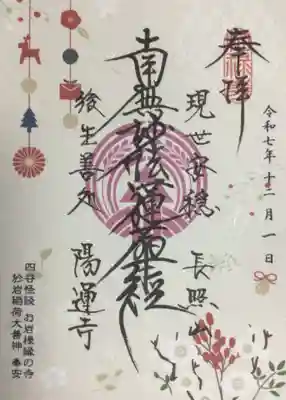 奉拝
令和七年十二月一日
現世安穏 長照山
南無妙法蓮華経
後生善処 陽運寺
四谷怪談 お岩様縁の寺
於岩稲荷大善神 奉安